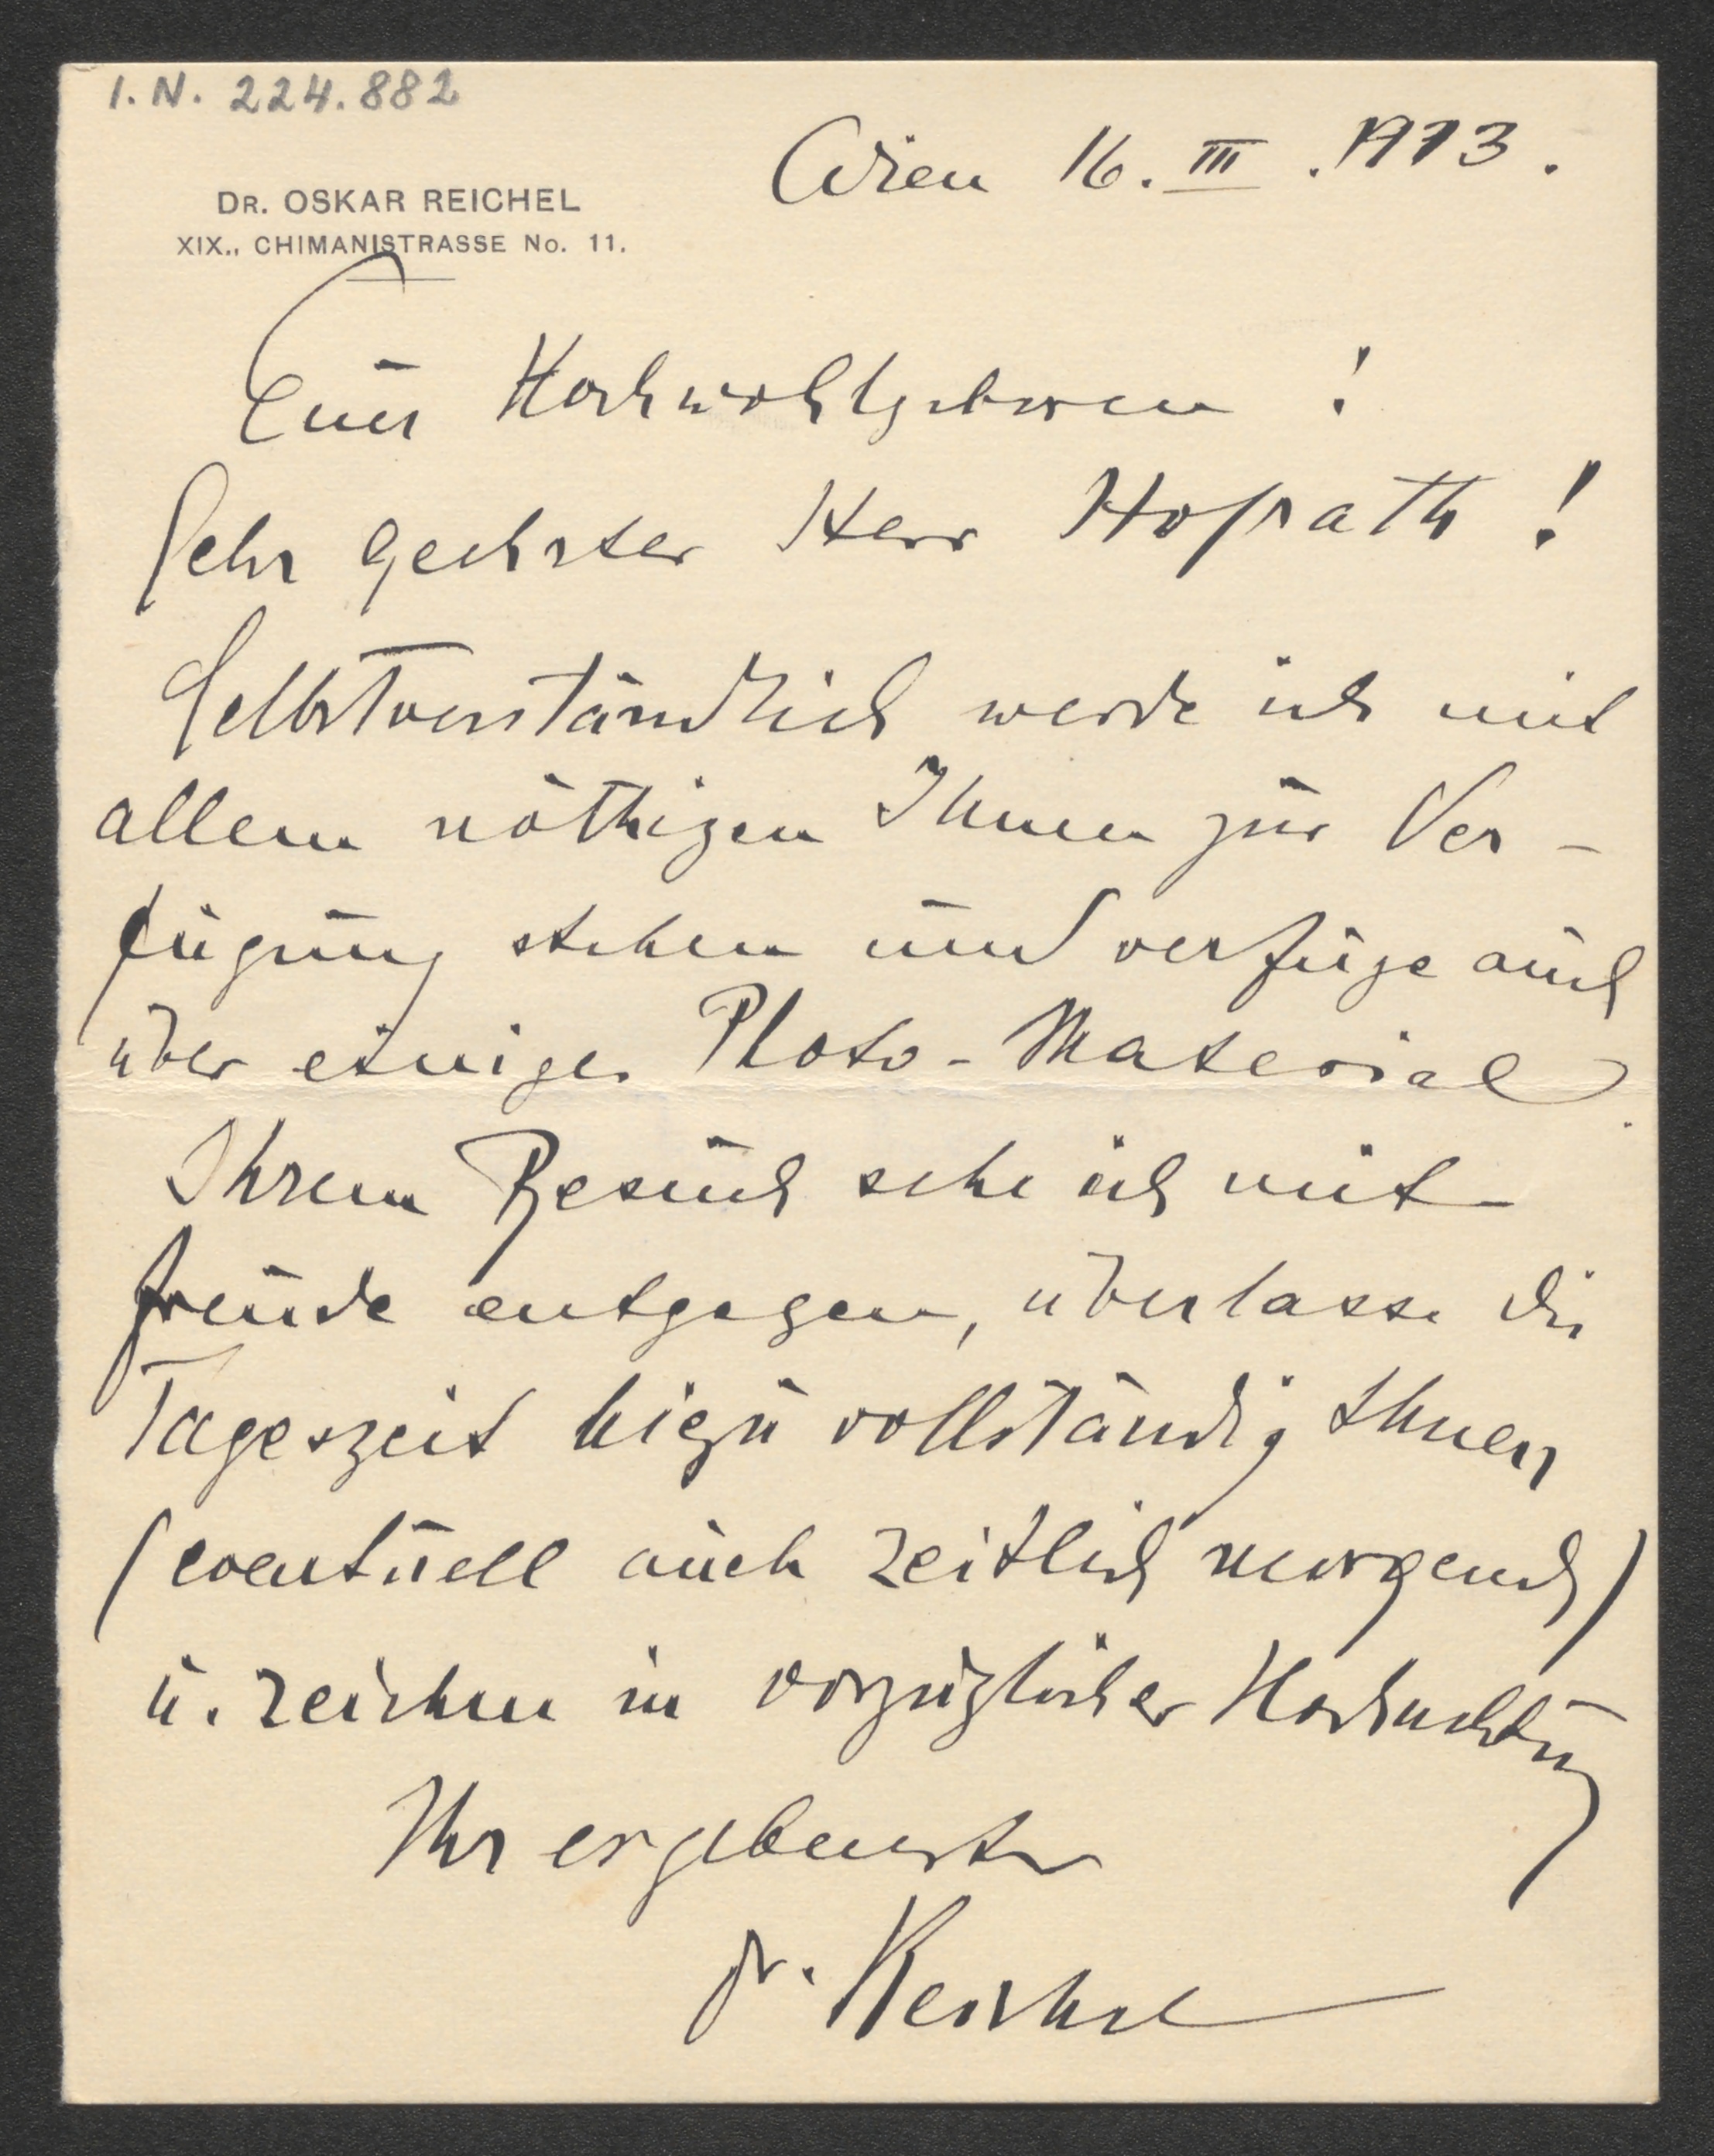 I.N. 224.882
Wien 16. III. 1913.
DR. OSKAR REICHEL
XIX., CHIMANISTRASSE No. 11.
Euer Hochwohlgeboren!
Sehr geehrter Herr Hofrath!
Selbstverständlich werde ich mit
allem nöthigen Ihnen zur Ver-
fügung stehen und verfüge auch
über einiges Photo-Material.
Ihrem Besuch sehe ich mit
Freude entgegen, überlasse die
Tageszeit hiezu vollständig Ihnen
(eventuell auch zeitlich morgends)
u. zeichne in vorzüglicher Hochachtung
Ihr ergebenster
Dr. Reichel